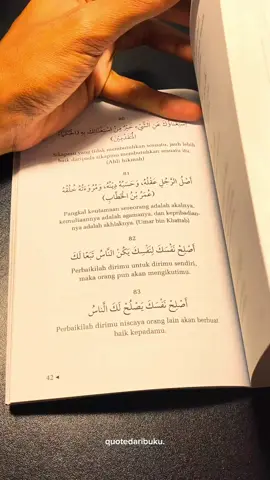 80
اسْتِغْنَاؤُكَ عَنِ الشَّيْءِ خَيْرٌ مِنِ اسْتِغْنَائِكَ بِهِ
Sikapmu yang tidak membutuhkan sesuatu, jauh lebih
baik daripada sikapmu membutuhkan sesuatu itu.
(Ahli hikmah)
81
أَصْلُ الرَّجُلِ عَقْلُهُ، وَحَسَبُهُ دِيْنُهُ، وَمُرُوْءَتُهُ خُلُقُهُ
(عُمَرُ بْنُ الْخَطَّابِ)
Pangkal keutamaan seseorang adalah akalnya,
kemuliaannya adalah agamanya, dan kepribadian-
nya adalah akhlaknya. (Umar bin Khattab)
82
أَصْلِحْ نَفْسَكَ لِنَفْسِكَ يَكُنِ النَّاسُ تَبَعًا لَكَ
Perbaikilah dirimu untuk dirimu sendiri,
maka orang pun akan mengikutimu.
83
أَصْلِحْ نَفْسَكَ يَصْلُحْ لَكَ النَّاسُ
Perbaikilah dirimu niscaya orang lain akan berbuat
baik kepadamu.
42
quotedaribuku.